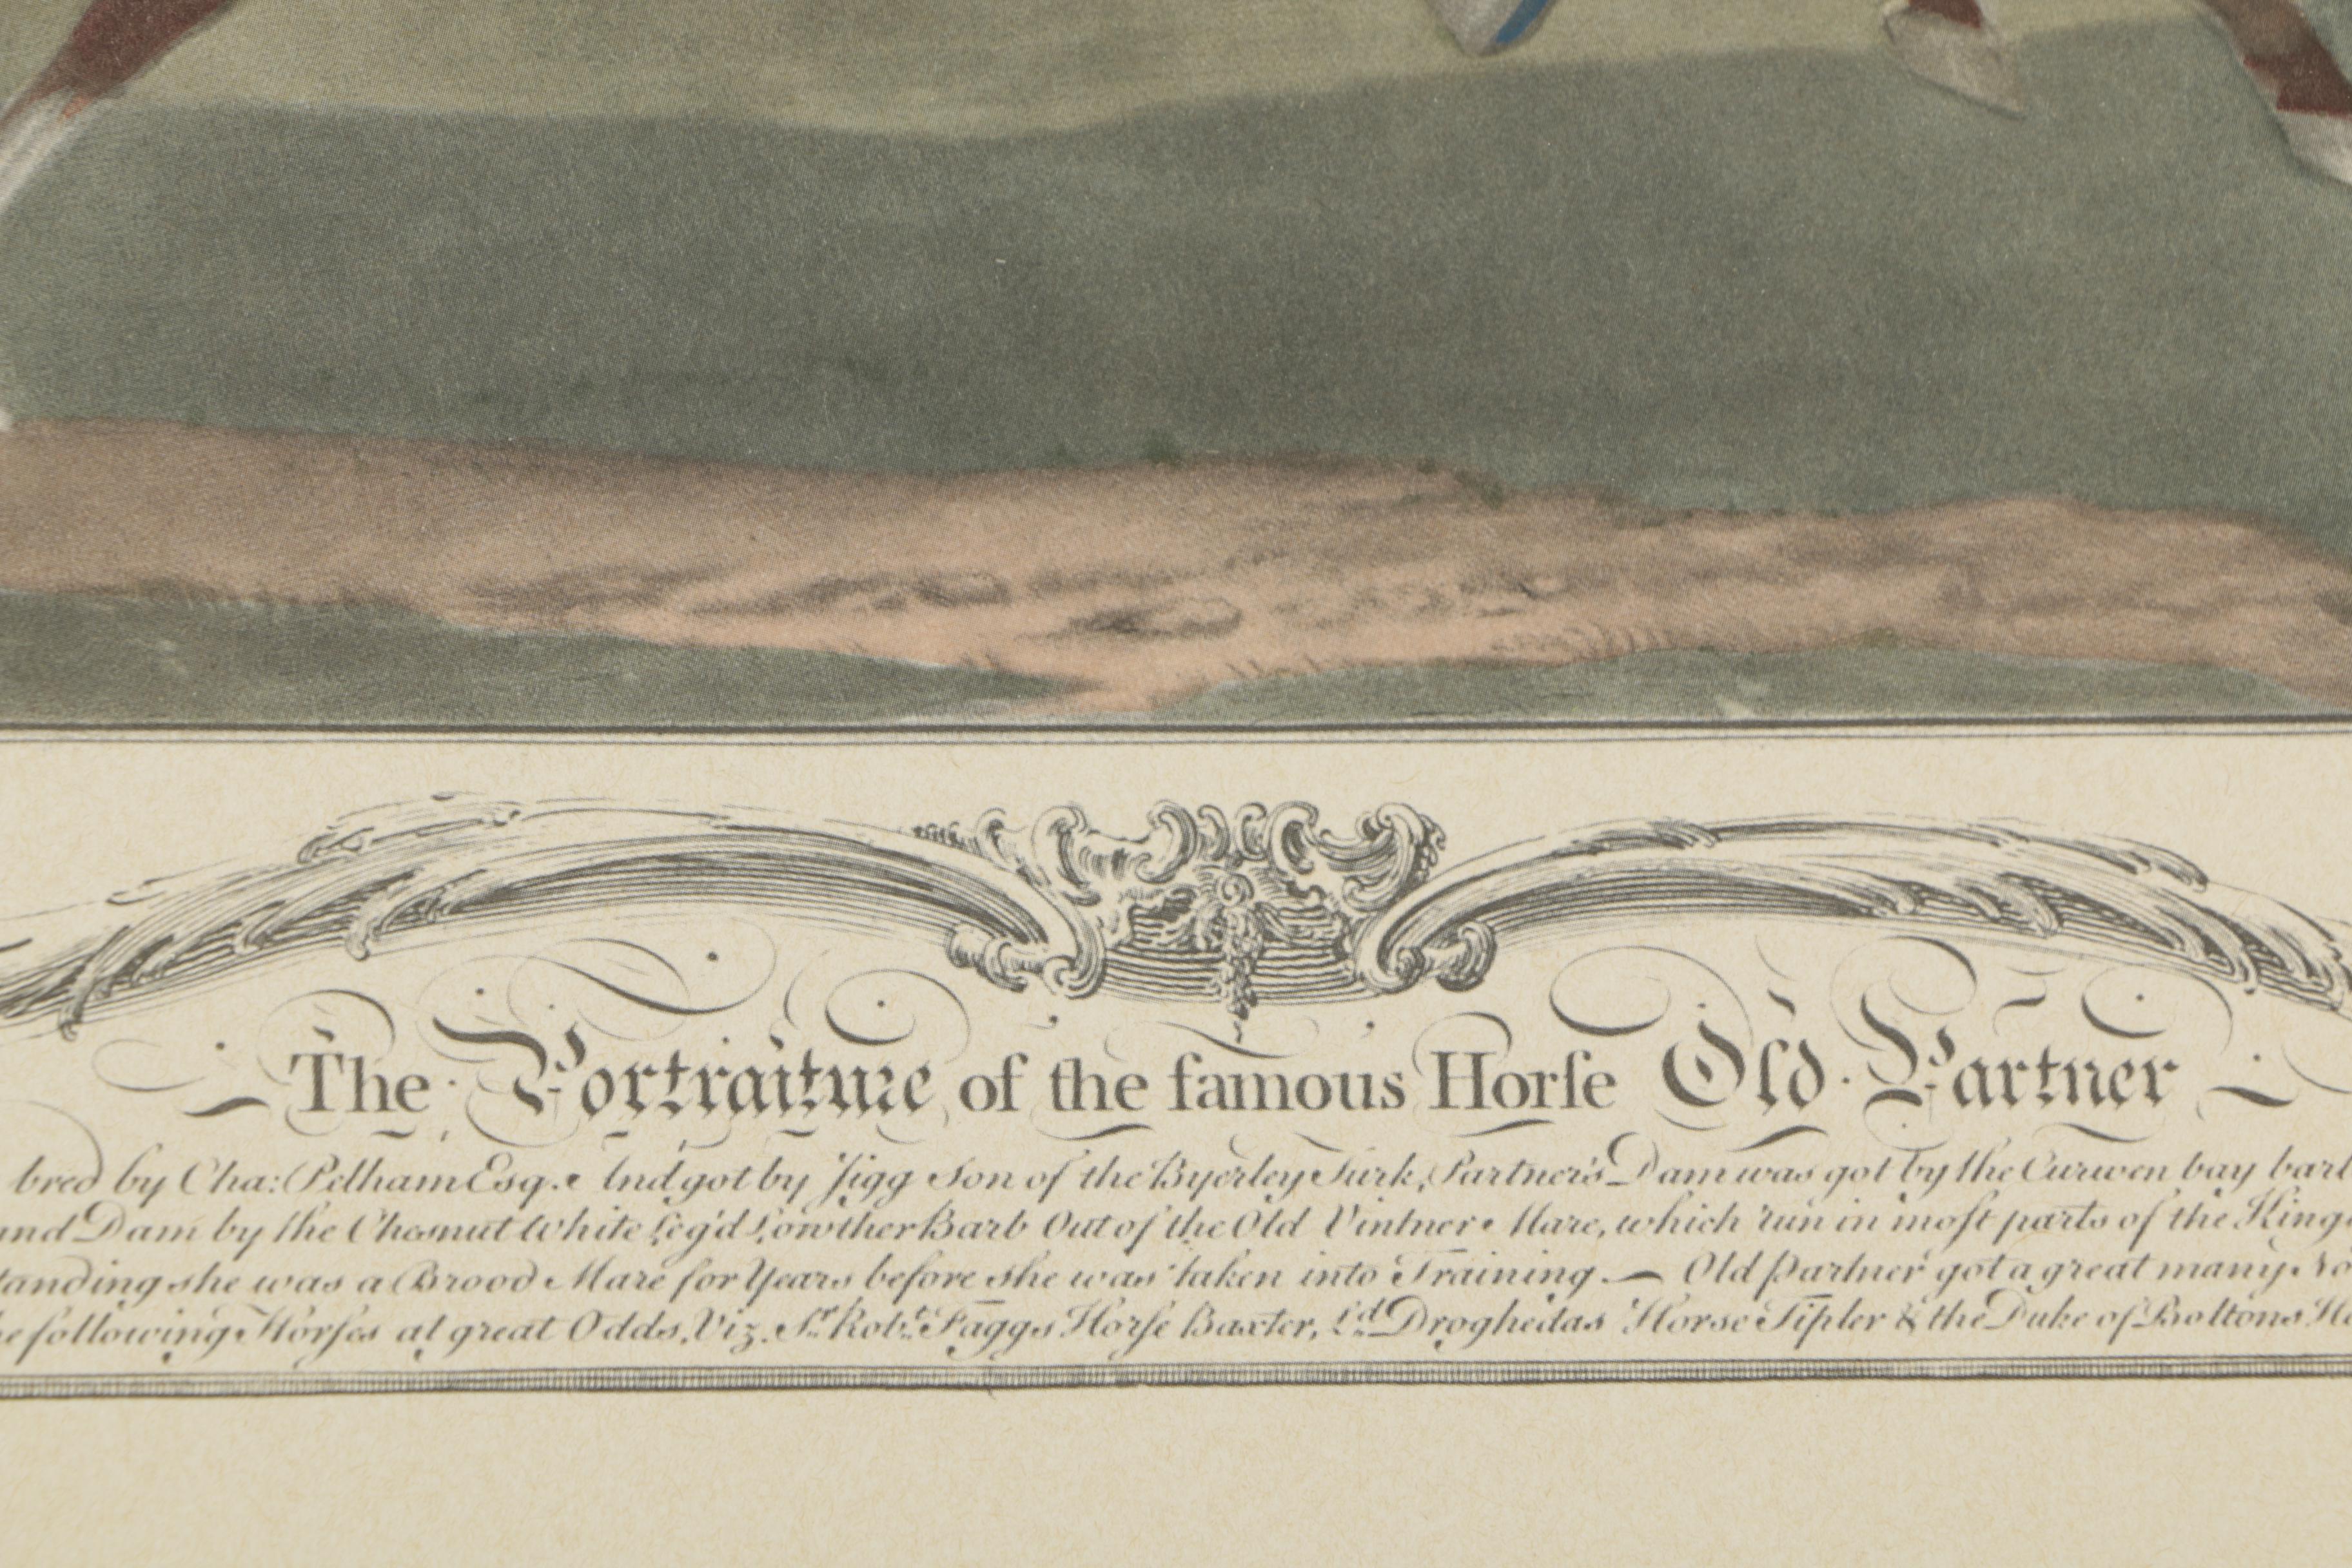 The Portraiture of the famous Horſe Old Partner
bred by Cha: Pelham Esq. And got by Jigg Son of the Byerley Turk, Partner's Dam was got by the Curwen bay barb
and Dam by the Chesnut White Leg'd Lowther Barb Out of the Old Vintner Mare, which run in moſt parts of the King
tanding she was a Brood Mare for Years before she was taken into Training. — Old Partner got a great many No
he following Horſes at great Odds, Viz. Sr. Robt. Faggs Horſe Baxter, Ld. Droghedas Horse Tipler & the Duke of Boltons Ho